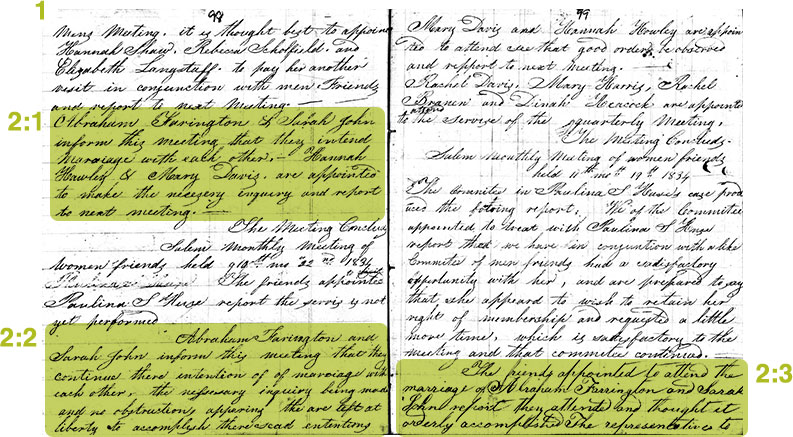 1
98
mens Meeting. it is thought best to appoint
Hannah Shaw. Rebecca Scholfield. and
Elizabeth Langstaff. to pay her another
visit in conjunction with men Friends
and report to next Meeting.
2:1
Abraham Farington & Sarah John
inform this meeting that they intend
Marriage with each other. Hannah
Hawley & Mary Davis. are appointed
to make the necesery inquiry and report
to next meeting.
The Meeting Concluds
Salem Monthly Meeting of
women friends held 10th mo 22nd 1834
The friends appointed
Paulina S Huse report the servis is not
yet performed
2:2
Abraham Farington and
Sarah John inform this meeting that they
continue there intention of of marriage with
each other, the nessesary inquiry being made
and no obstruction appearing the are left at
liberty to accomplish there said intentions
99
Mary Davis and Hannah Howley are appoin
ted to attend see that good order be observed
and repport to next meeting.
Rachel Davis. Mary Harris, Rachel
Brawen and Dinah Heacock are appointed
to attend the servise of the quarterly Meeting,
The Meeting Concluds.
Salem Monthly Meeting of women friends
held 11th mo 19th 1834
The Committee in Paulina S Huse's case prod
uced the following report, We of the Committee
appointed to treat with Paulina S Huse
report that we have in conjuntion with a like
Committee of men friends had a satisfactory
opertunity with her, and are prepared to say
that she appeard to wish to retain her
right of membership and requested a little
more time, which is satisfactory to the
meeting and that commetee continued.
2:3
The friends appointed to attend the
marriage of Abraham Farrington and Sarah
John report they attended and thought it
orderly accomplished The representative to